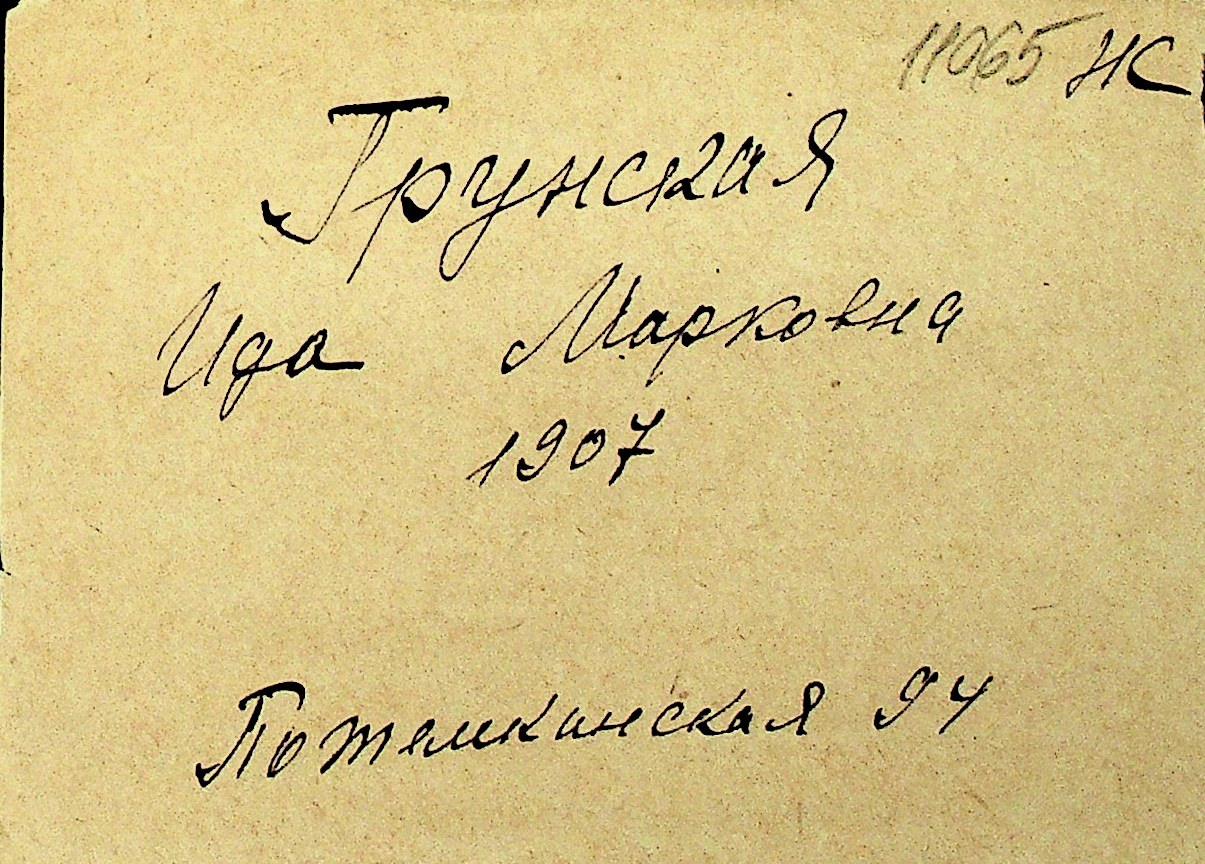 11065 НС
Грунская
Ида Марковна
1907
Потемкинская 94